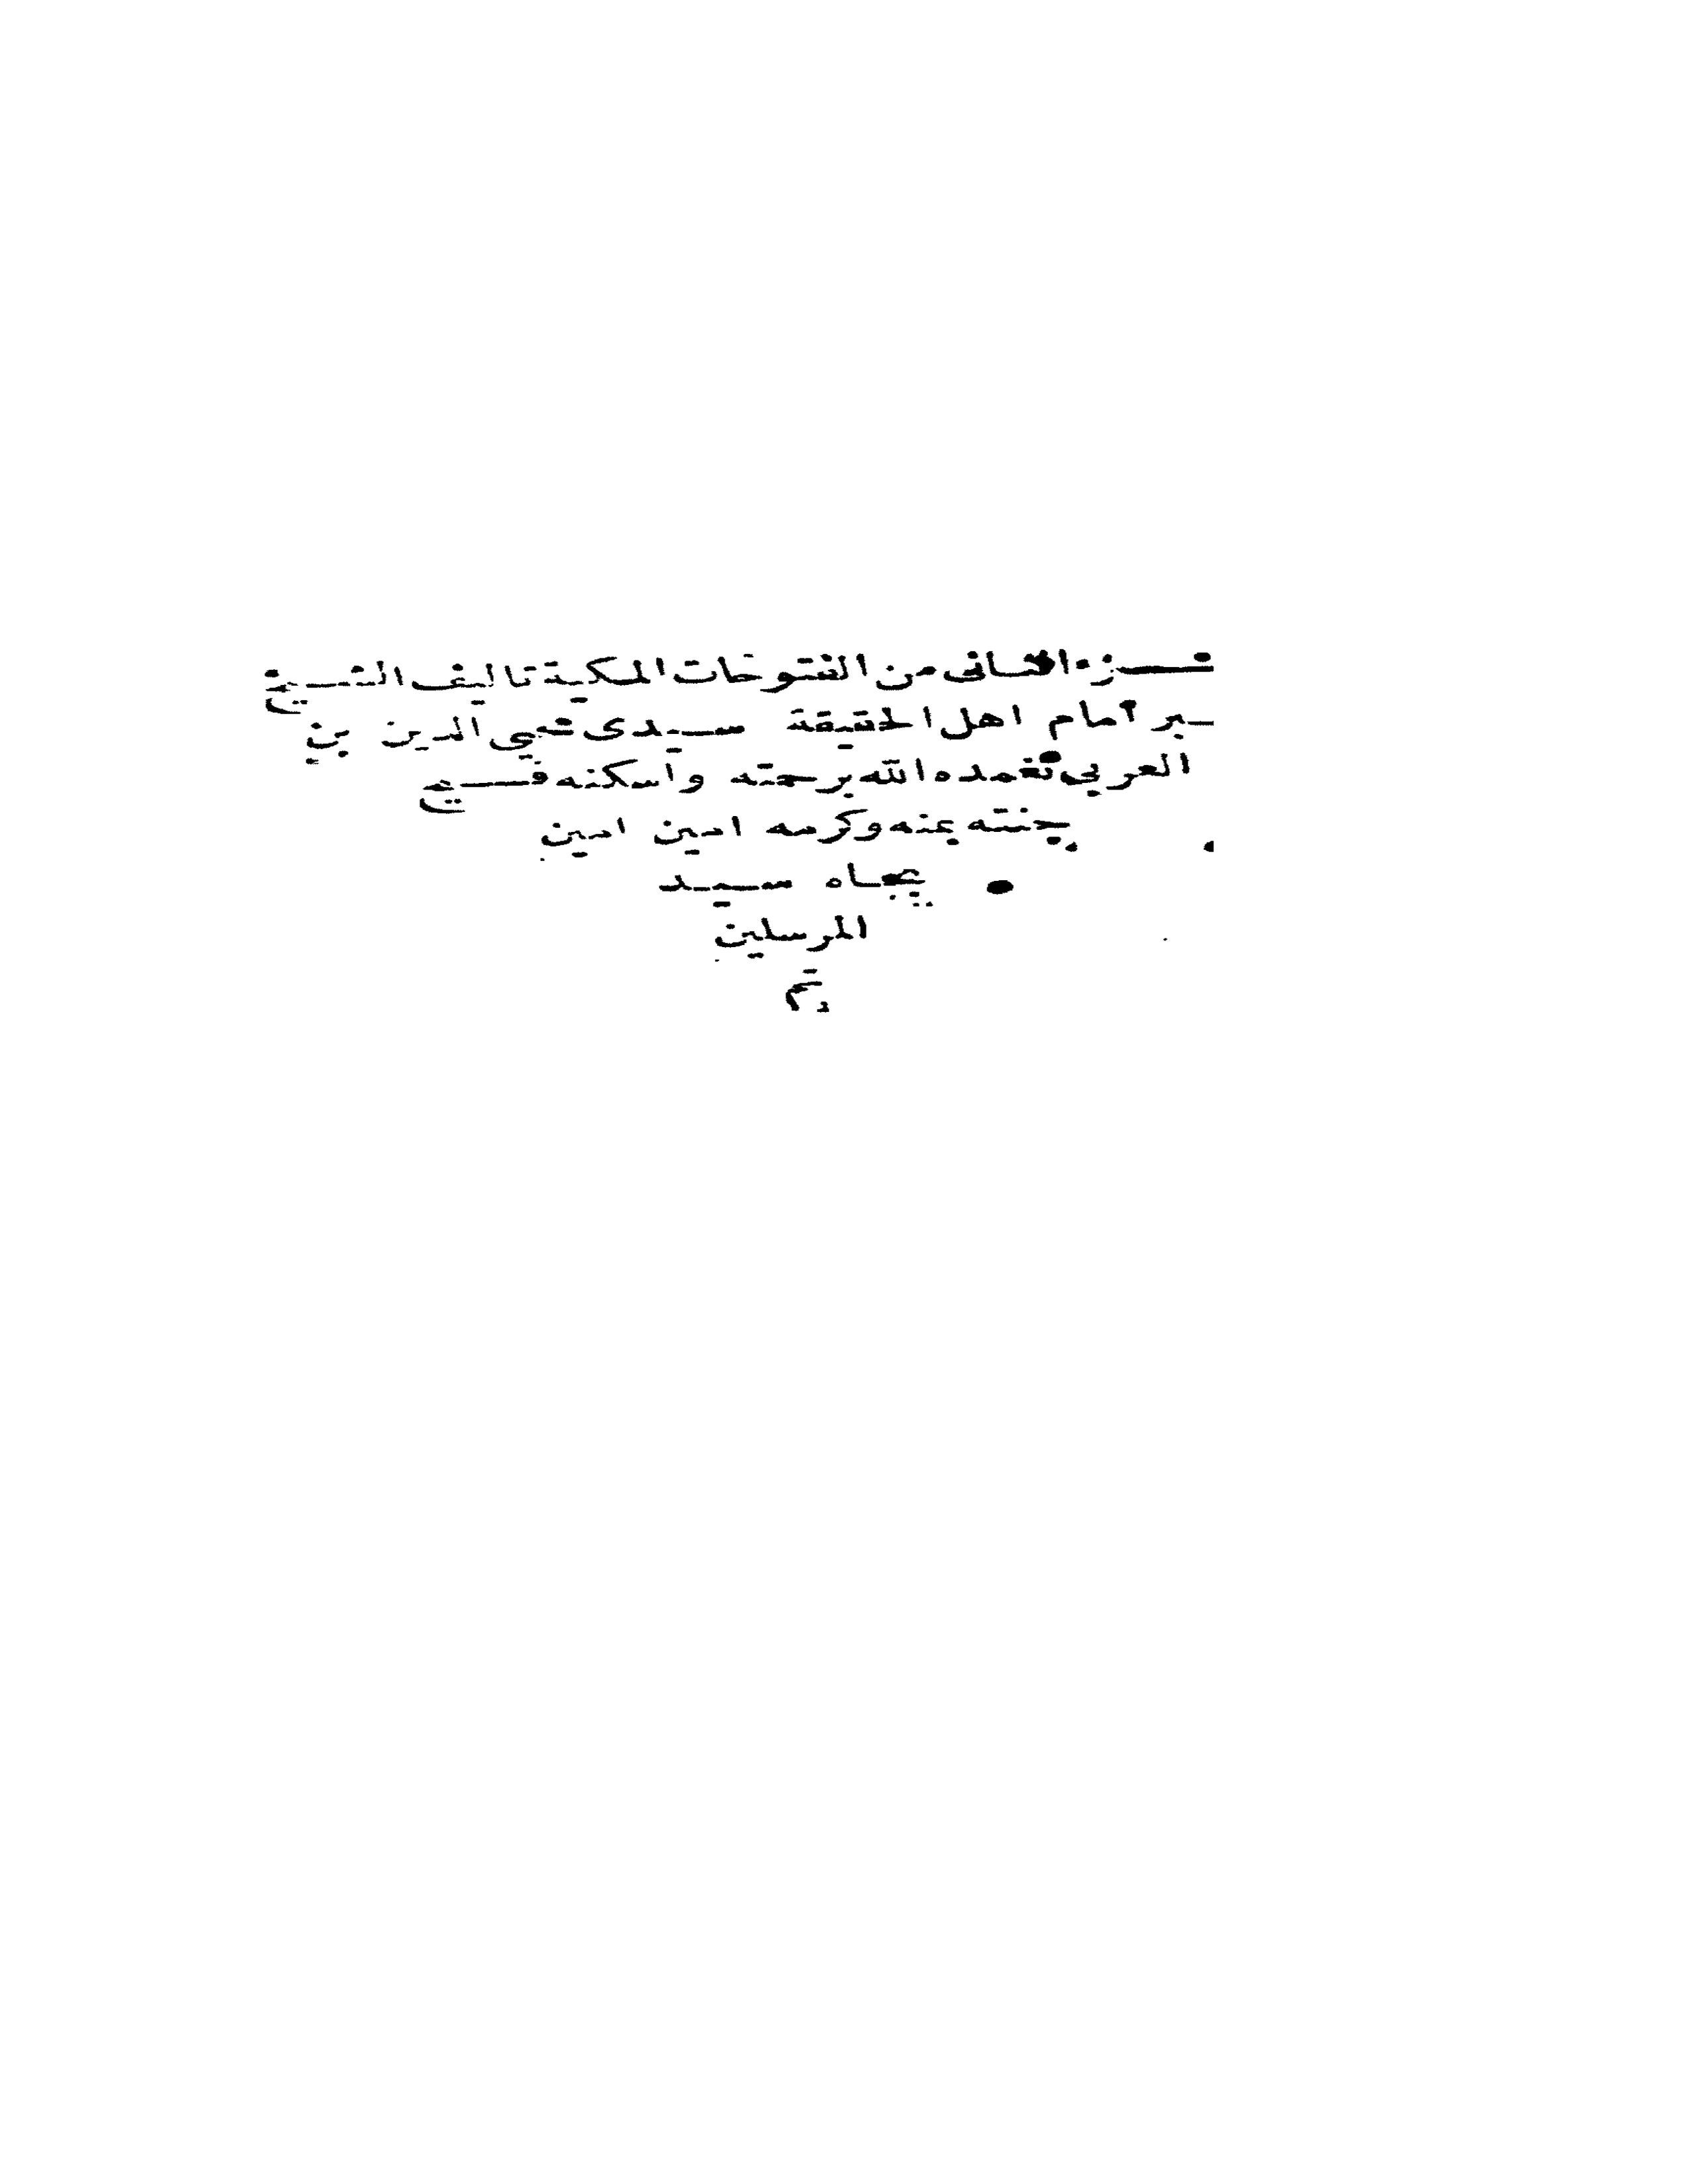 ـزء الثانى من الفتوحات المكية تاليف الشيخ
ـبر امام اهل الحقيقة سيدى محيي الدين بن
العربي تغمده الله برحمته واسكنه فسيح
جنته بمنه وكرمه امين امين
بجاه سيد
المرسلين
تم